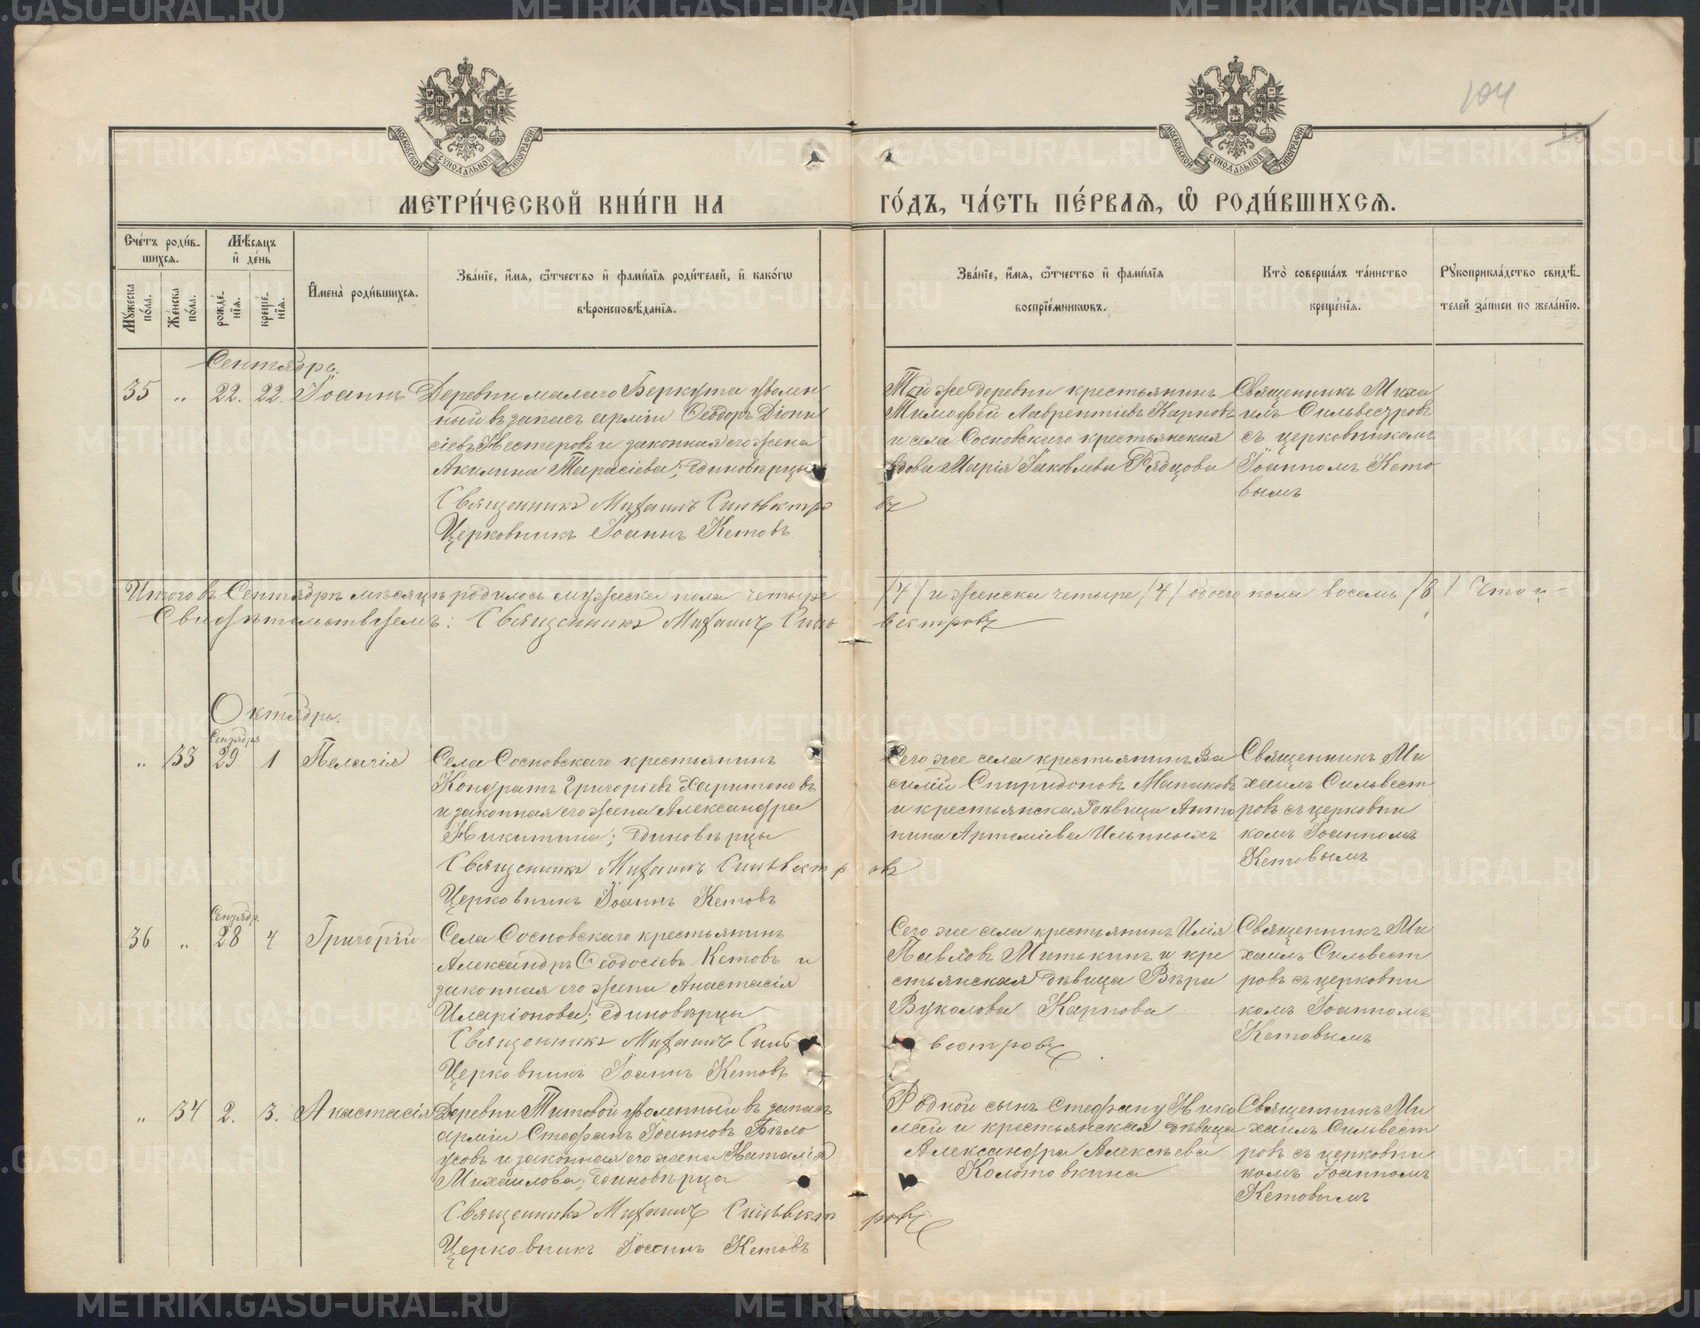 104
МЕТРИ́ЧЕСКОЙ КНИ́ГИ НА ГО́ДЪ, ЧА́СТЬ ПЕ́РВАЯ, Ѽ РОДИ́ВШИХСЯ.
Сче́тъ роди́вшихся.
Му́жеска по́ла.
Же́нска по́ла.
Мѣ́сяцъ и де́нь
рожде́нїя.
креще́нїя.
И҆мена̀ роди́вшихся.
Зва́нїе, и҆́мя, ѻ҆́тчество и҆ фами́лїя роди́телей, и҆ како́гѡ
вѣроисповѣ́данїя.
Зва́нїе, и҆́мя, ѻ҆́тчество и҆ фами́лїя
воспрїе́мникѡвъ.
Кто̀ соверша́лъ та́инство
креще́нїя.
Рꙋкоприкла́дство свидѣ́-
телей за́писи по жела́нїю.
Сентябрь.
35 „ 22. 22. Іоаннъ
Деревни малаго Беркута уволен
ный въ запасъ арміи Ѳеодоръ Діони
сіевъ Нестеровъ и законная его жена
Акилина Тарасіева; единовѣрцы
Священникъ Михаилъ Сильвестровъ
Церковникъ Іоаннъ Кетовъ.
Той же деревни крестьянинъ
Тимофей Лаврентіевъ Карповъ
и села Сосновскаго крестьянская
вдова Марія Іаковлева Рядцова
Священникъ Миха
илъ Сильвестровъ
съ церковникомъ
Іоанномъ Кето
вымъ
Итого въ Сентябрѣ мѣсяцѣ родилось мужеска пола четыре /4/ и женска четыре /4/ обоего пола восемь /8/ Что и
Свидѣтельствуемъ: Священникъ Михаилъ Сильвестровъ
Октябрь.
„ 33 Сентября 29 1 Пелагія
Села Сосновскаго крестьянинъ
Кондратъ Григоріевъ Харитоновъ
и законная его жена Александра
Никитина; единовѣрцы
Священникъ Михаилъ Сильвестровъ
Церковникъ Іоаннъ Кетовъ
Сего же села крестьянинъ Ва
силій Спиридоновъ
и крестьянская дѣвица Анто
нина Артеміева Ильиныхъ
Священникъ Ми
хаилъ Сильвест
ровъ съ церковни
комъ Іоанномъ
Кетовымъ
36 „ Сентябр. 28 4 Григорій
Села Сосновскаго крестьянинъ
Александръ Ѳеодосіевъ Кетовъ и
законная его жена Анастасія
Иларіонова; единовѣрцы
Священникъ Михаилъ Сильвестровъ
Церковникъ Іоаннъ Кетовъ
Сего же села крестьянинъ Илія
Павловъ Митькинъ и кре
стьянская дѣвица Вѣра
Вуколова Карпова
Священникъ Ми
хаилъ Сильвест
ровъ съ церковни
комъ Іоанномъ
Кетовымъ
„ 34 2. 3. Анастасія
Деревни Титовой уволенный въ запасъ
арміи Стефанъ Іоанновъ Бѣло
усовъ и законная его жена Наталія
Михаилова; единовѣрцы
Священникъ Михаилъ Сильвестровъ
Церковникъ Іоаннъ Кетовъ
Родной сынъ Стефану Нико
лай и крестьянская дѣвица
Александра Алексѣева
Колотовкина
Священникъ Ми
хаилъ Сильвест
ровъ съ церковни
комъ Іоанномъ
Кетовымъ
METRIKI.GASO-URAL.RU